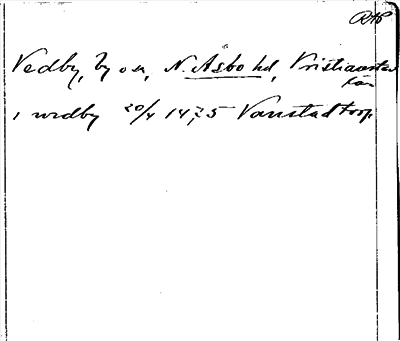 RAP
Vedby, by o sn, N. Åsbo hd, Kristianstad
län
i wedby 20/4 1475 Vanstad kop.